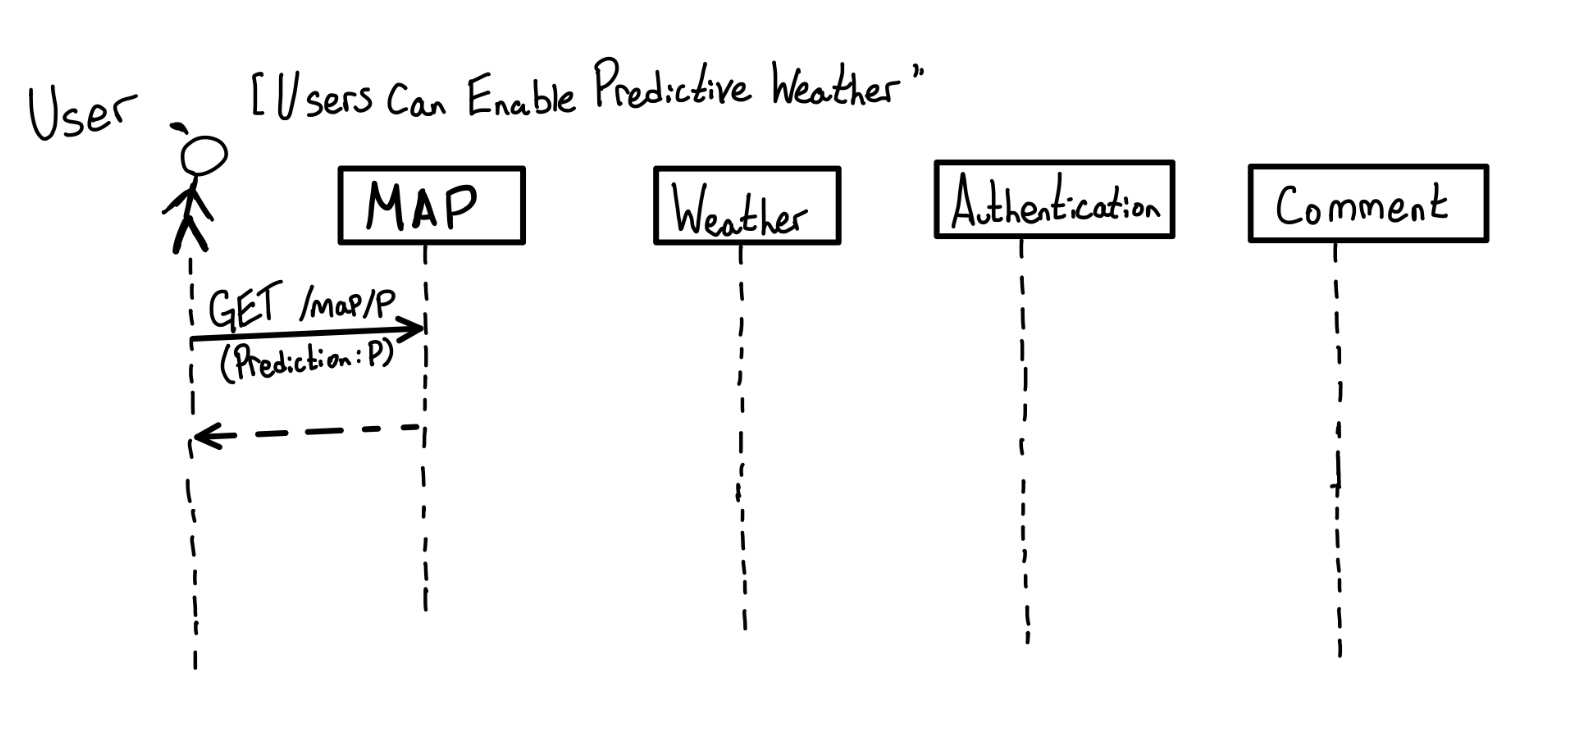 User
[Users Can Enable Predictive Weather"
MAP
Weather
Authentication
Comment
GET /map/P
(Prediction: P)